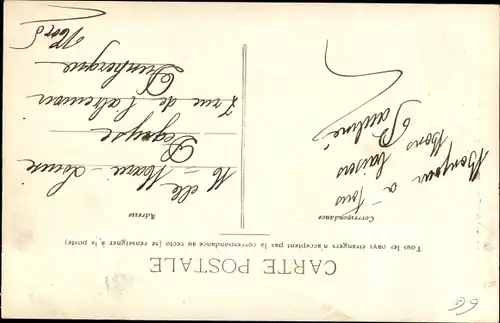 CARTE POSTALE
Tous les pays étrangers n'acceptent pas la correspondance au recto (se renseigner à la poste)
Correspondance
Adresse
Bonjour à Tous
Bons baisers
Pauline
M elle Marie-Louise
7 rue de
Dunkerque
Nord